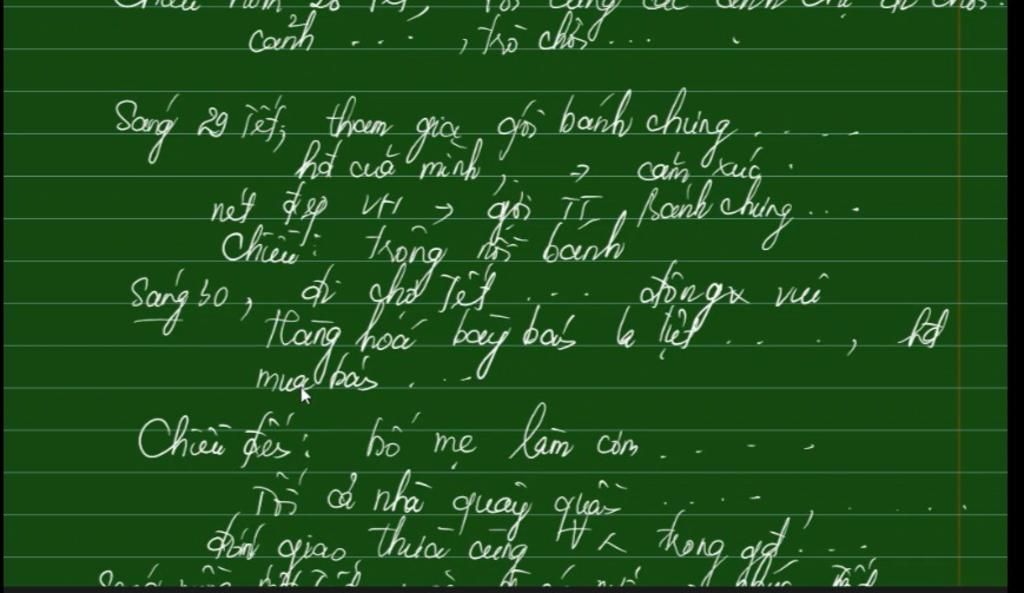 cảnh .... , trò chơi ... .
Sáng 29 Tết, tham gia gói bánh chưng .....
hđ của mình, → cảm xúc .
nét đẹp VH → gói TT, Bánh chưng ...
Chiều: trông nồi bánh
Sáng 30, đi chợ Tết .... đông vui
Hàng hoá bày bán la liệt ....., hđ
mua bán ...
Chiều đến: bố mẹ làm cơm ....
Tối cả nhà quây quần ...., ....
đón giao thừa cùng trong gđ ...